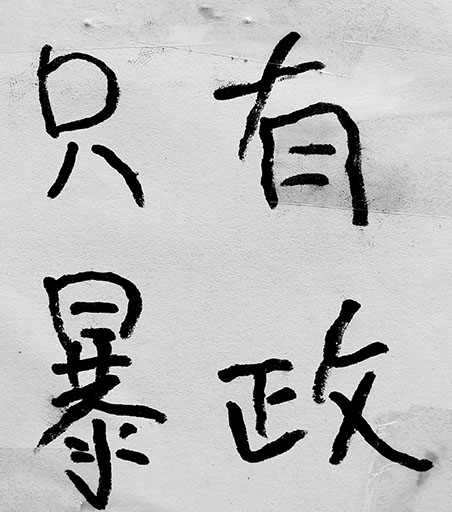 只有
暴政